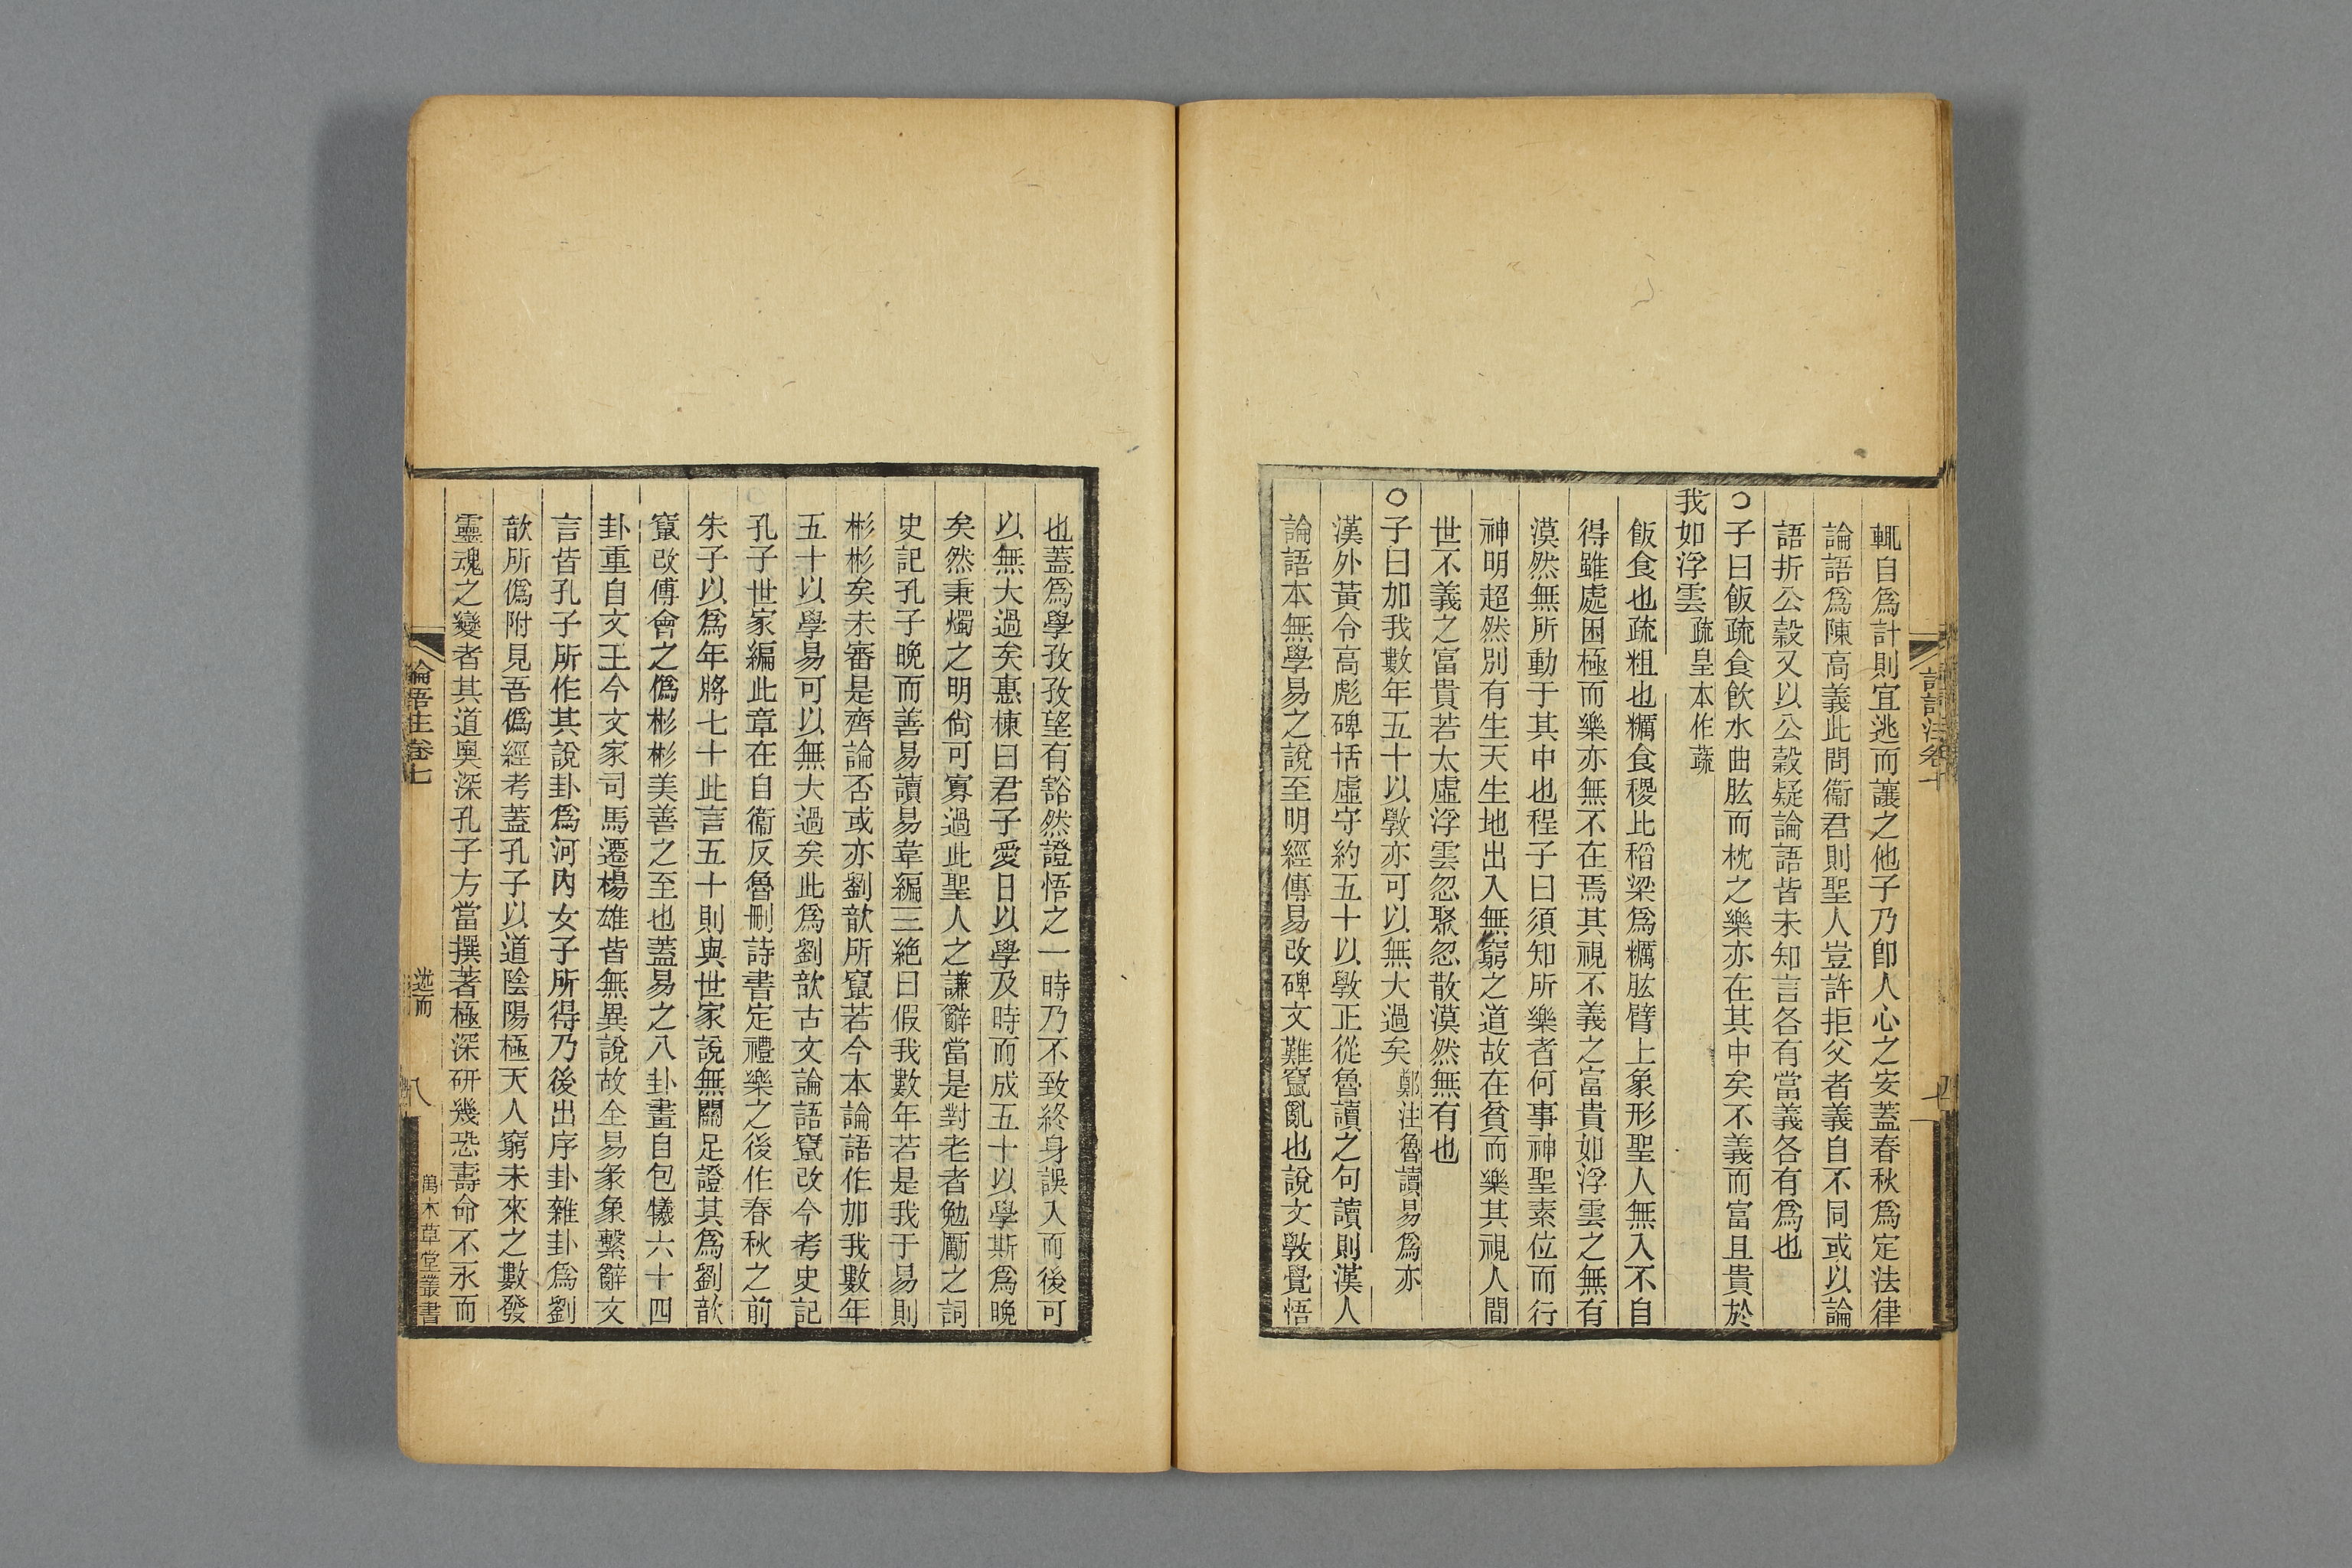 輒自爲計則宜逃而讓之他子乃卽人心之安蓋春秋爲定法律
論語爲陳高義此問衞君則聖人豈許拒父者義自不同或以論
語折公穀又以公穀疑論語皆未知言各有當義各有爲也
○子曰飯疏食飮水曲肱而枕之樂亦在其中矣不義而富且貴於
我如浮雲疏皇本作蔬
飯食也疏粗也糲食稷比稻梁爲糲肱臂上象形聖人無入不自
得雖處困極而樂亦無不在焉其視不義之富貴如浮雲之無有
漠然無所動于其中也程子曰須知所樂者何事神聖素位而行
神明超然別有生天生地出入無窮之道故在貧而樂其視人間
世不義之富貴若太虛浮雲忽聚忽散漠然無有也
○子曰加我數年五十以斆亦可以無大過矣鄭注魯讀易爲亦
漢外黃令高彪碑恬虛守約五十以斆正從魯讀之句讀則漢人
論語本無學易之說至明經傳易改碑文難竄亂也說文斆覺悟
也蓋爲學孜孜望有豁然證悟之一時乃不致終身誤入而後可
以無大過矣惠棟曰君子愛日以學及時而成五十以學斯爲晚
矣然秉燭之明尙可寡過此聖人之謙辭當是對老者勉勵之詞
史記孔子晚而善易讀易韋編三絕曰假我數年若是我于易則
彬彬矣未審是齊論否或亦劉歆所竄若今本論語作加我數年
五十以學易可以無大過矣此爲劉歆古文論語竄改今考史記
孔子世家編此章在自衞反魯刪詩書定禮樂之後作春秋之前
朱子以爲年將七十此言五十則與世家說無關足證其爲劉歆
竄改傅會之僞彬彬美善之至也蓋易之八卦畫自包犧六十四
卦重自文王今文家司馬遷楊雄皆無異說故全易彖象繫辭文
言皆孔子所作其說卦爲河內女子所得乃後出序卦雜卦爲劉
歆所僞附見吾僞經考蓋孔子以道陰陽極天人窮未來之數發
靈魂之變者其道奧深孔子方當撰著極深研幾恐壽命不永而
論語注卷七
述而
八
萬木草堂叢書